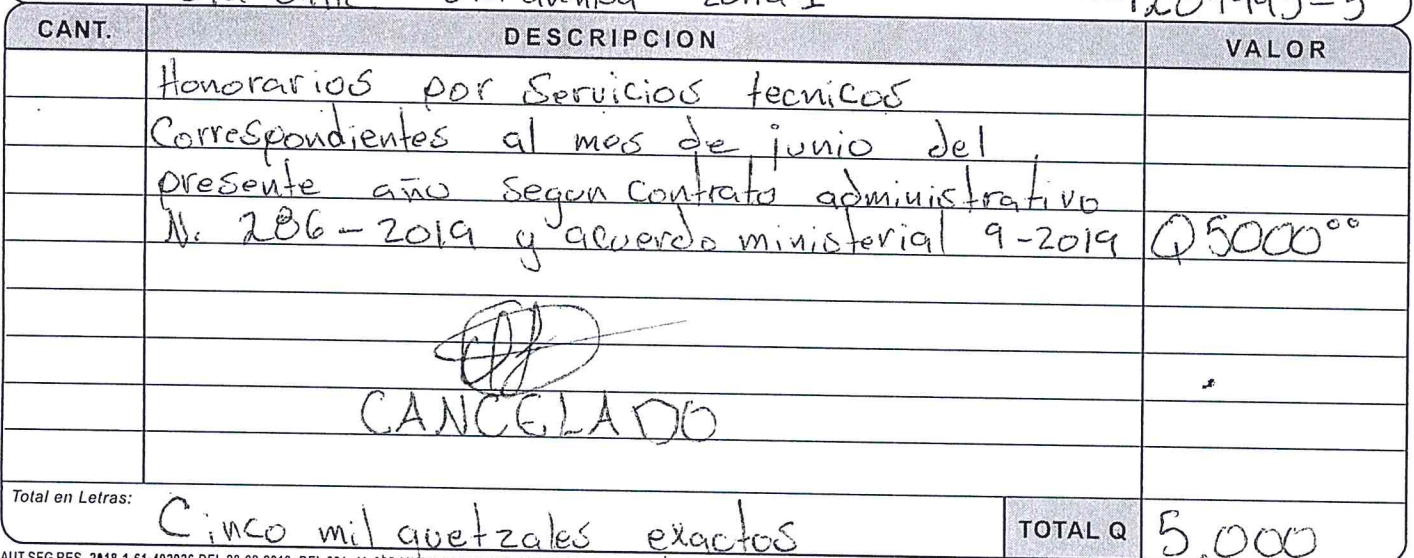 Zona 1
CANT. DESCRIPCION VALOR
Honorarios por Servicios tecnicos
Correspondientes al mes de junio del
presente año segun Contrato administrativo
N. 286-2019 y acuerdo ministerial 9-2019 Q5000.00
CANCELADO
Total en Letras: Cinco mil quetzales exactos TOTAL Q 5,000